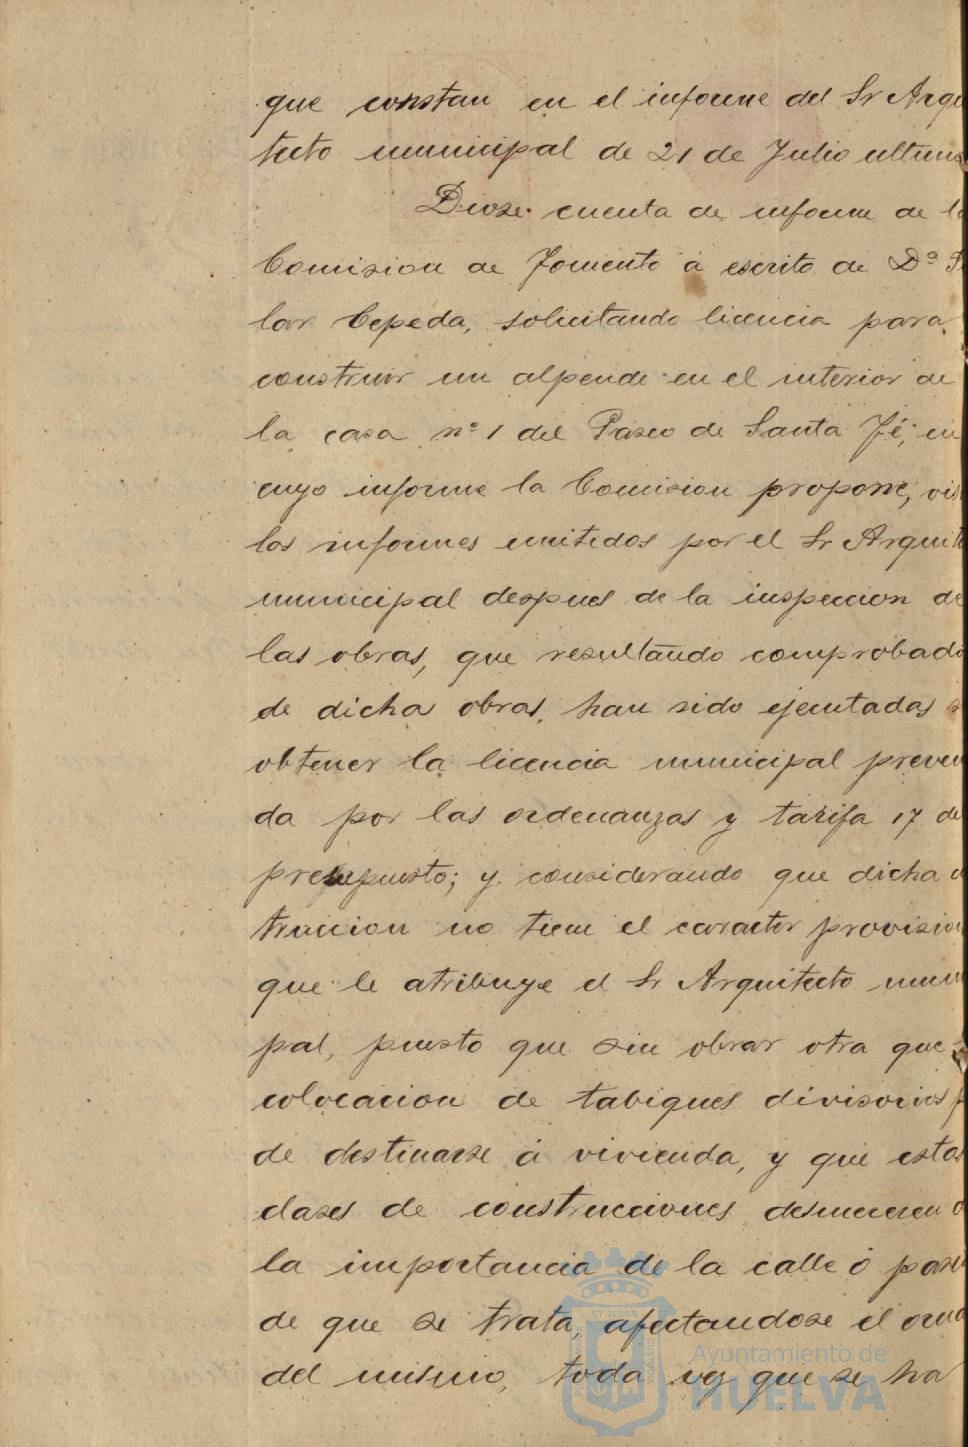 que constan en el informe del Sr Arqui
tecto municipal de 21 de Julio ultimo
Diose cuenta de informe de la
Comision de Fomento á escrito de Dª
lar Cepeda, solicitando licencia para
construir un alpende en el interior de
la casa nº 1 del Paseo de Santa Fé; en
cuyo informe la Comision propone, vis
los informes emitidos por el Sr Arquite
municipal despues de la inspeccion de
las obras, que resultando comprobado
de dicha obras, han sido ejecutadas s
obtener la licencia municipal preven
da por las ordenanzas y tarifa 17 del
presupuesto; y considerando que dicha
truccion no tiene el caracter provision
que le atribuye el Sr Arquitecto muni
pal, puesto que sin obrar otra que
colocacion de tabiques divisorios p
de destinarse á vivienda, y que estas
clases de construcciones desmerecen
la importancia de la calle ó paseo
de que se trata, afectandose el orna
del mismo, toda vez que se ha
Ayuntamiento de
HUELVA